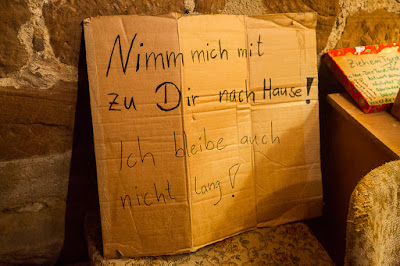 Nimm mich mit
zu Dir nach Hause!
Ich bleibe auch
nicht lang!